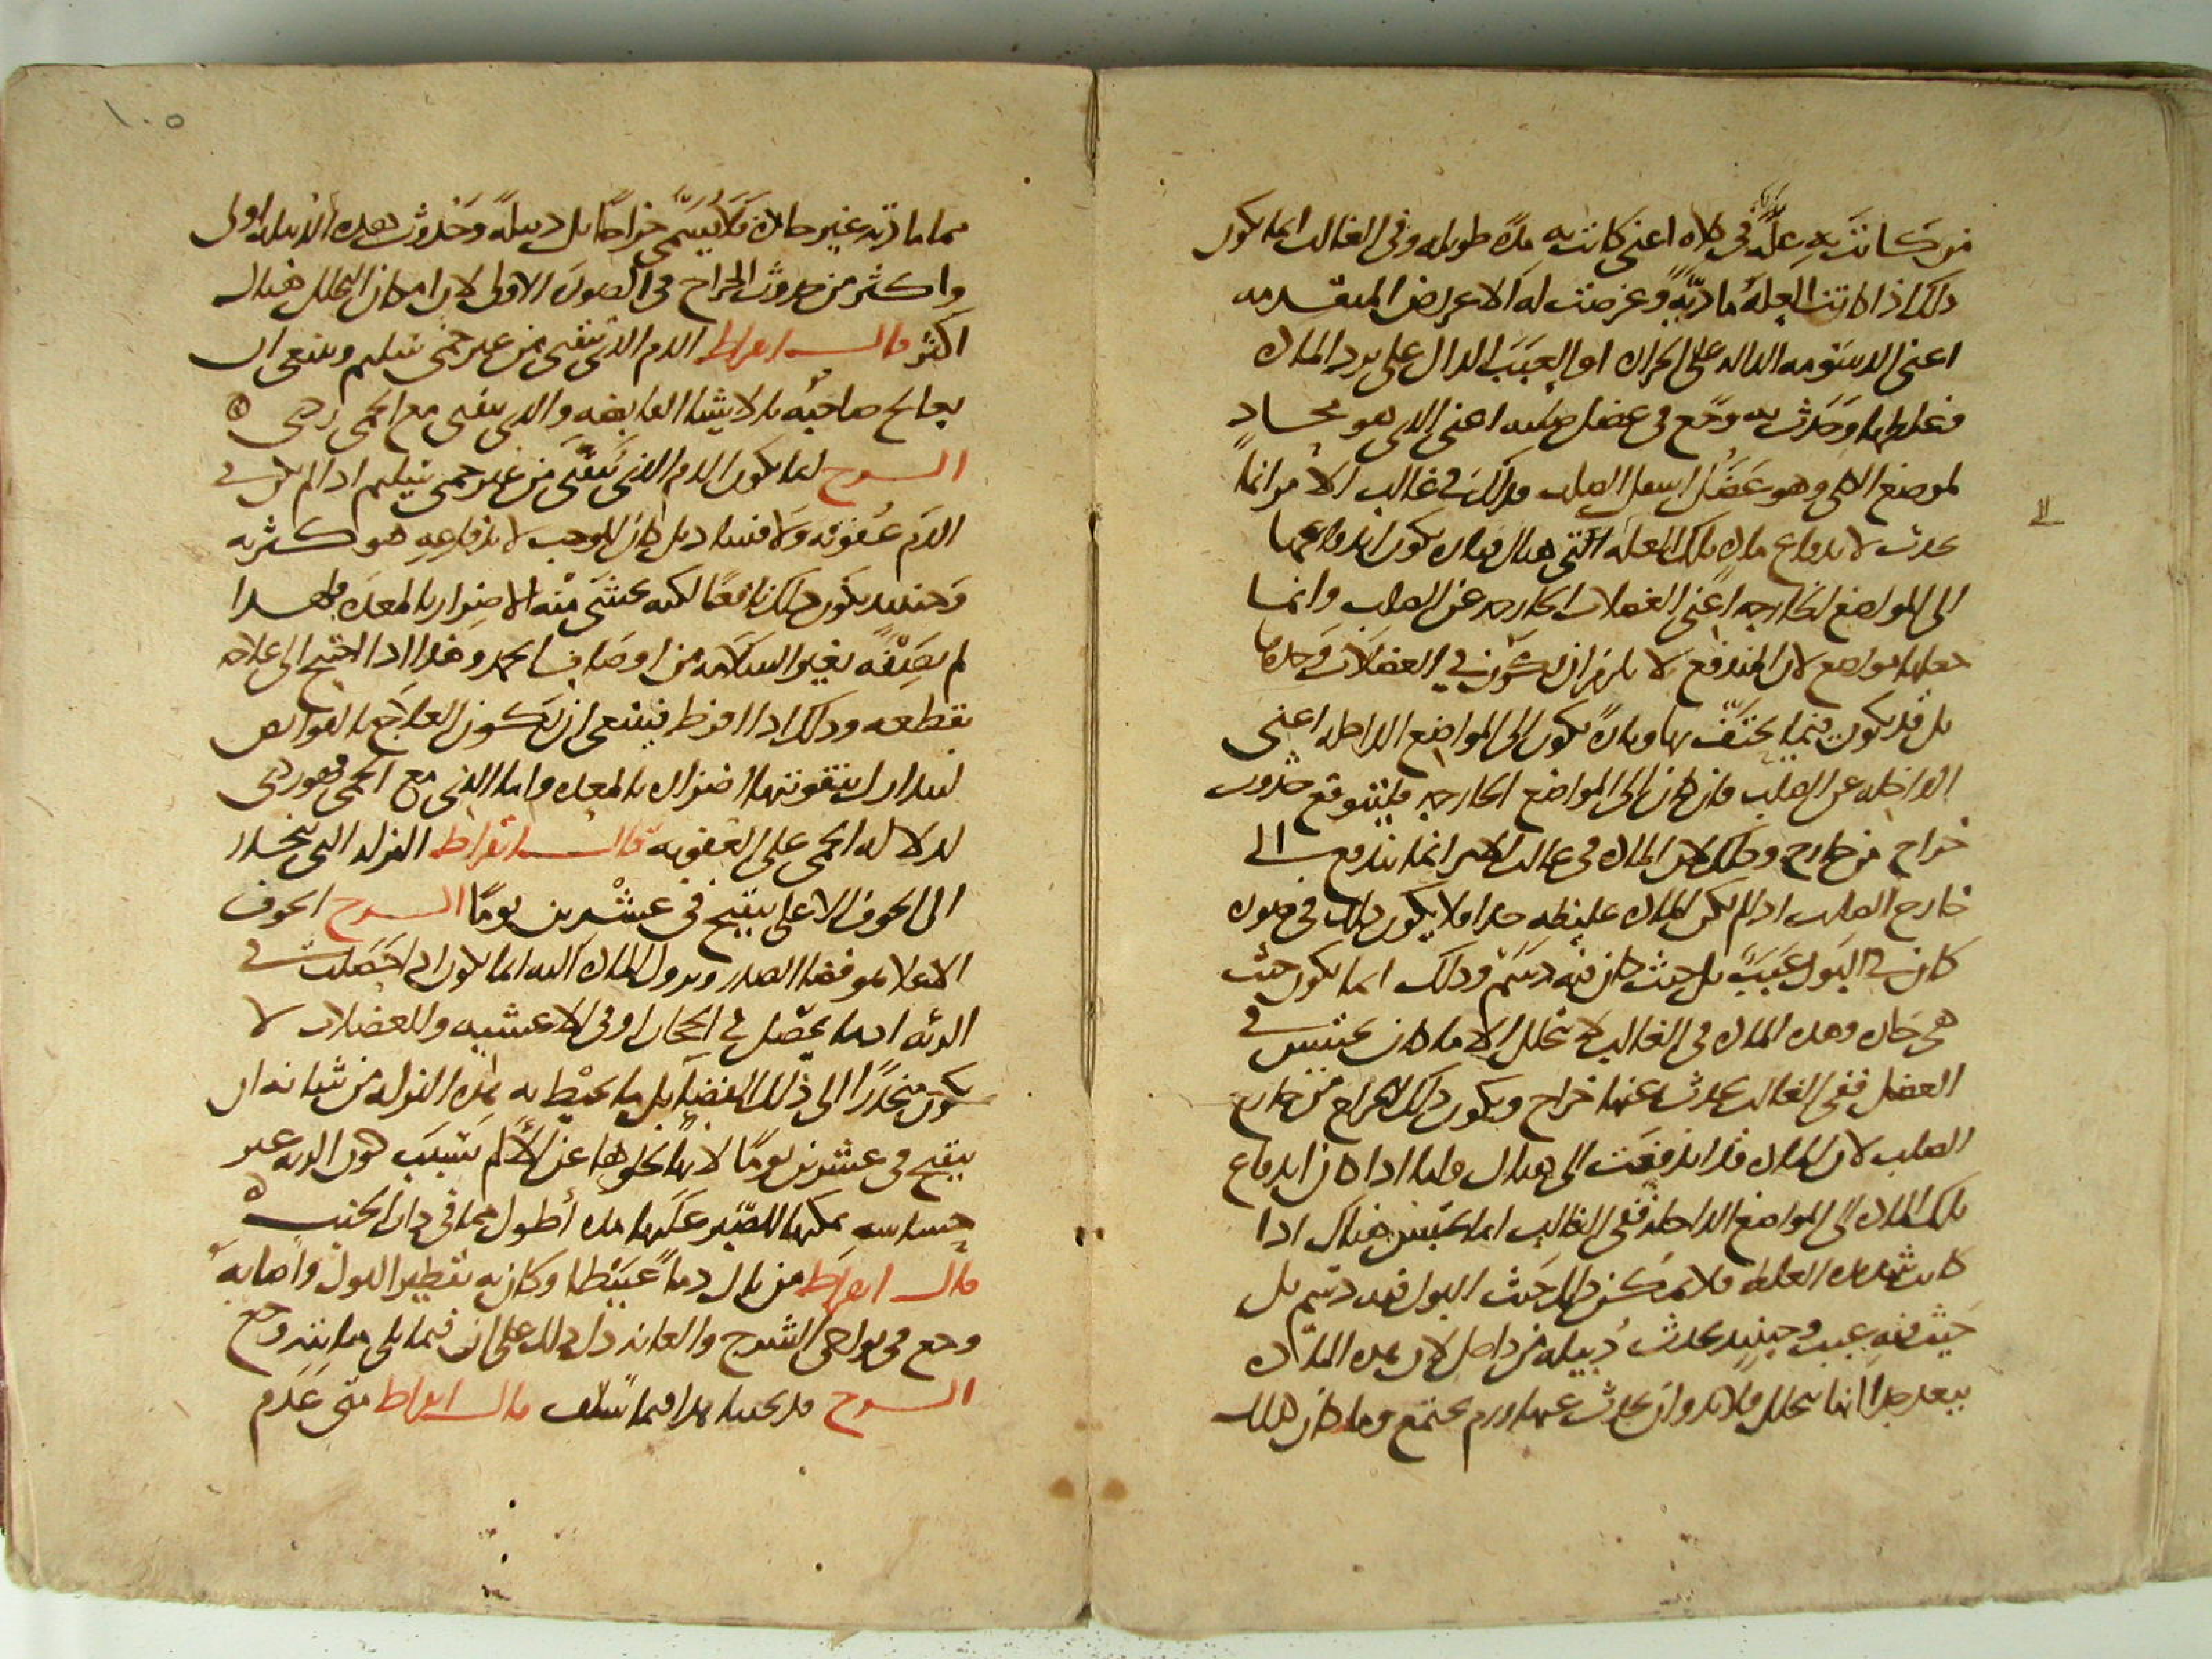 من كانت به علة في كلاه اعنى كانت به مدة طويله وفى الغالب انما يكون
ذلك اذا كانت العلة مادية وعرضت له الاعراض المتقدمه
اعنى الدسومه الداله على الحراره او العبب الدال على برد الماده
وغلظها وحدث به وجع فى عضل صلبه اعنى الذى هو محاد
لموضع الكلى وهو عضل اسفل الصلب فذلك فى غالب الامر انما
يحدث لاندفاع ماده تلك العله التى هناك فتاره يكون اندفاعها
الى المواضع الخارجه اعنى العضلات الخارجه عن الصلب وانما
جعلها مواضع لان المندفع لا يلزم ان يكون فى العضلات وحدها
بل قد يكون فيما يحتف بها وتارة يكون الى المواضع الداخله اعنى
الداخله عن الصلب فان كان الى المواضع الخارجه فليتوقع حدوث
خراج من خارج وذلك لان الماده فى غالب الامر انما تندفع الى
خارج الصلب اذا لم تكن الماده غليظه جدا فلا يكون ذلك فى صوره
كان فى البول عبب بل حيث كان فيه دسم وذلك انما يكون حيث
هى حاره وهذه الماده فى الغالب لا تتحلل الا ما كان يحتبس فى
العضل ففى الغالب يحدث عنها خراج ويكون ذلك الخراج من خارج
الصلب لان الماده قد اندفعت الى هناك واما اذا كان اندفاع
تلك الماده الى المواضع الداخله ففى الغالب انما يحتبس هناك اذا
كانت شديده الغلظ فلا يمكن ذلك حيث البول فيه دسم بل
حيث فيه عبب وحينيد يحدث دبيله من داخل لان هذه الماده
يبعد جدا انها تتحلل فلابد وان يحدث عنها ورم يجتمع وما كان كذلك
١٠٥
مما مادته غير حاره فلا يسمى خراجا بل دبيلة وحدوث هذه الدبيله اولى
واكثر من حدوث الخراج فى الصورة الاولى لان امكان التحلل هناك
اكثر قال ابقراط الدم الذى يتقيى من غير حمى سليم وينبغى ان
يعالج صاحبه بالاشيا القابضه والذى يتقيى مع الحمى ردى
الشرح انما يكون الدم الذى يتقيى من غير حمى سليم اذا لم يكن فى
الدم عفونه ولا فساد بل كان الموجب لاندفاعه هو كثرته
وحينيد يكون ذلك نافعا لكنه يخشى منه الاضرار بالمعده فلهذا
لم يصفه بغير السلامه من اوصاف الحمد وهذا اذا احتيج الى علاجه
بقطعه وذلك اذا افرط فينبغى ان يكون العلاج بالقوابض
ليتدارك بتقويتها اضراره بالمعده واما الذى مع الحمى فهو ردى
لدلاله الحمى على العفونه قال ابقراط النزله التى تنحدر
الى الجوف الاعلى تتقيح فى عشرين يوما الشرح الجوف
الاعلا هو فضا الصدر ونزول الماده اليه انما يكون اذا حصلت فى
الريه اما يحصل فى الحجاب او فى الاغشيه والعضلات لا
يكون منحدرا الى ذلك الفضا بل ما يحيط به هذه النزله من شانها ان
يتقيح فى عشرين يوما لانها لخلوها عن الالم بسبب كون الريه غير
حساسه يمكنها الصبر عليها مده أطول مما فى ذات الجنب
قال ابقراط من بال دما عبيطا وكان به تقطير البول واصابه
وجع فى نواحى الشرج والعانه دل ذلك على ان فيما يلى مثانته وجع
الشرح قد بحثنا هذا فيما سلف قال ابقراط متى عدم